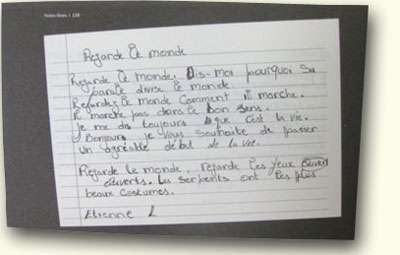 Regarde le monde
Regarde le monde. Dis-moi pourquoi sa
parole divise le monde.
Regardez le monde comment il marche.
Il marche pas dans le bon sens.
Je me dis toujours que c'est la vie.
Bonjours je vous souhaite de passer
un agréable début de la vie.
Regarde le monde, regarde les yeux
ouverts. Les serpents ont les plus
beaux costumes.
Etienne L